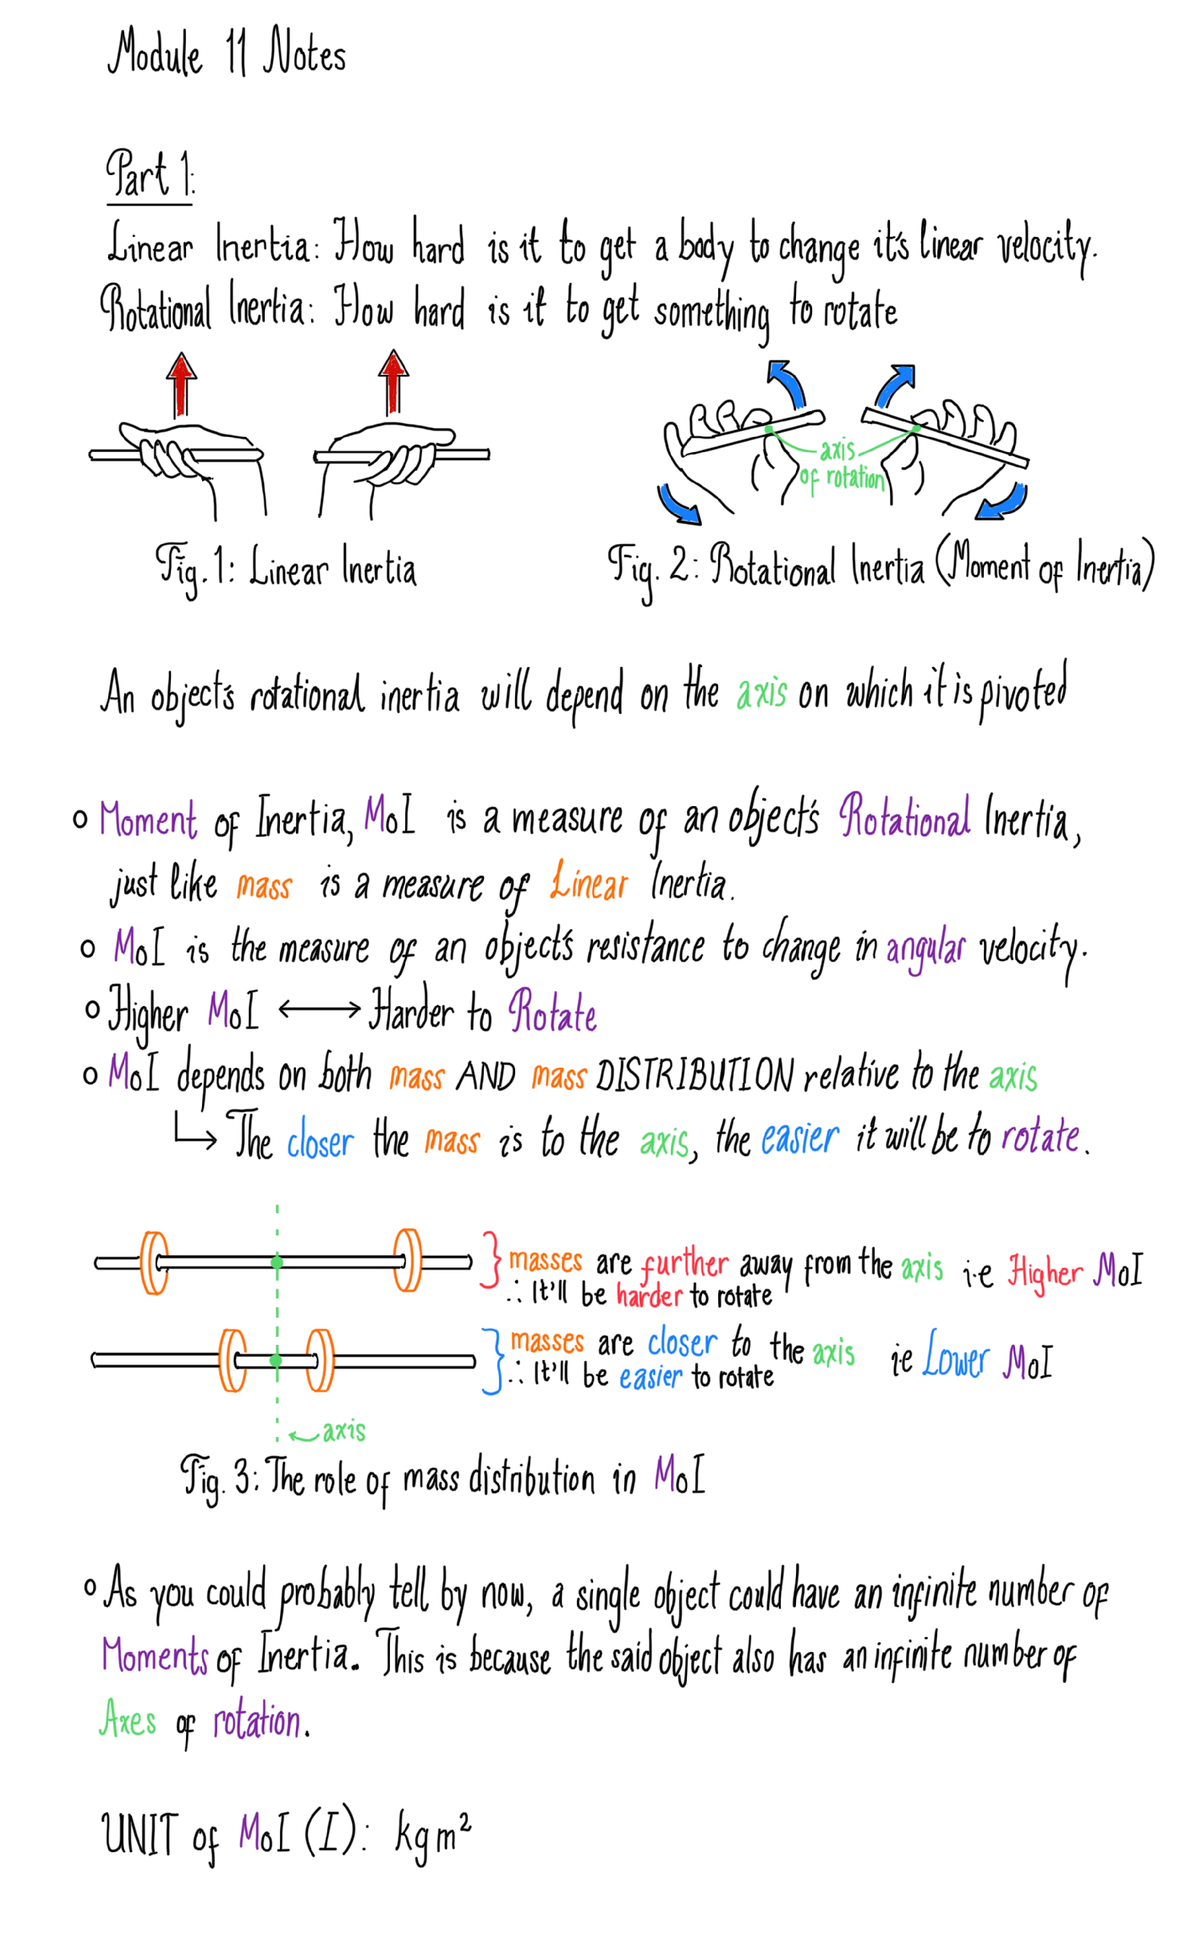 Module 11 Notes
Part 1:
Linear Inertia: How hard is it to get a body to change it's linear velocity.
Rotational Inertia: How hard is it to get something to rotate
axis
of rotation
Fig. 1: Linear Inertia
Fig. 2: Rotational Inertia (Moment of Inertia)
An object's rotational inertia will depend on the axis on which it is pivoted
o Moment of Inertia, MoI is a measure of an object's Rotational Inertia,
just like mass is a measure of Linear Inertia.
o MoI is the measure of an object's resistance to change in angular velocity.
o Higher MoI ⟷ Harder to Rotate
o MoI depends on both mass AND mass DISTRIBUTION relative to the axis
↳ The closer the mass is to the axis, the easier it will be to rotate.
masses are further away from the axis i.e Higher MoI
∴ It'll be harder to rotate
masses are closer to the axis ie Lower MoI
∴ It'll be easier to rotate
← axis
Fig. 3: The role of mass distribution in MoI
o As you could probably tell by now, a single object could have an infinite number of
Moments of Inertia. This is because the said object also has an infinite number of
Axes of rotation.
UNIT of MoI (I): kgm²